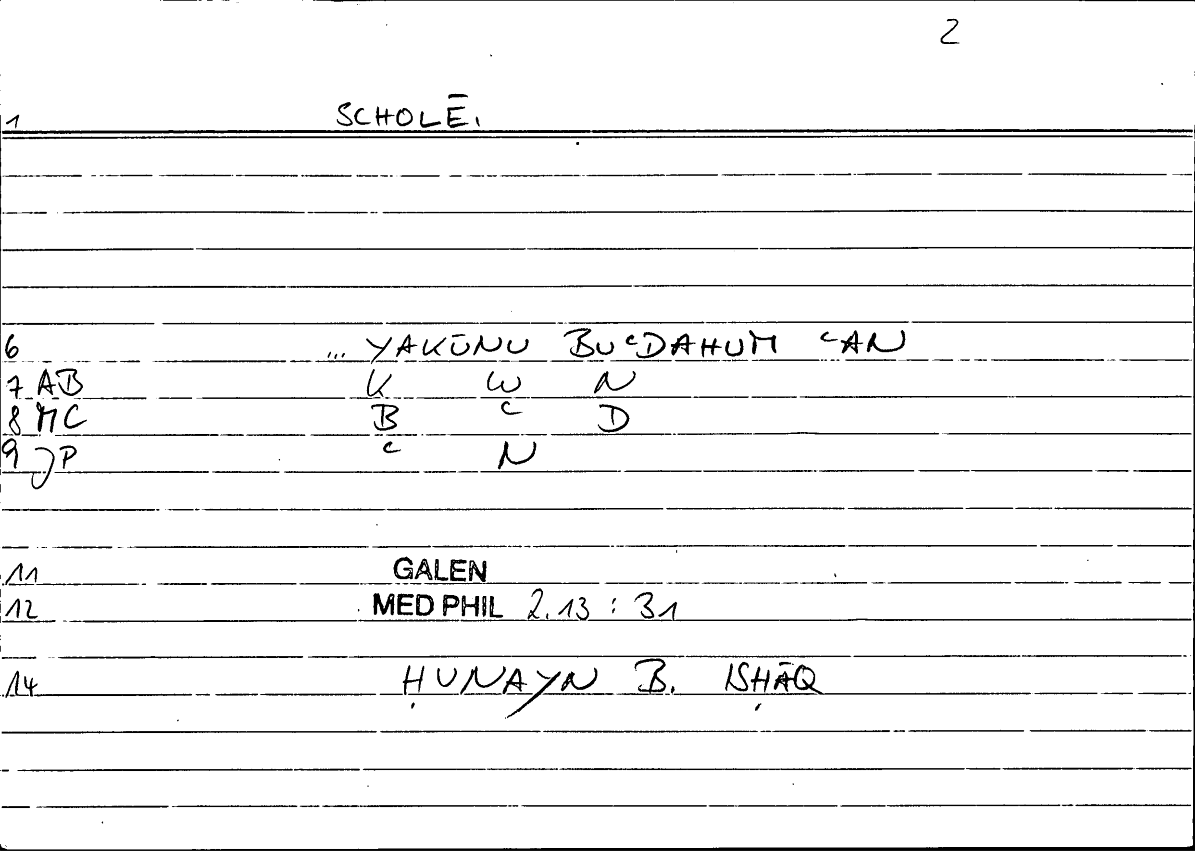 2
1 SCHOLĒ.
6 ... YAKŪNU BUᶜDAHUM ᶜAN
7 AB K W N
8 MC B ᶜ D
9 JP ᶜ N
11 GALEN
12 MED PHIL 2.13 : 31
14 ḤUNAYN B. ISḤĀQ